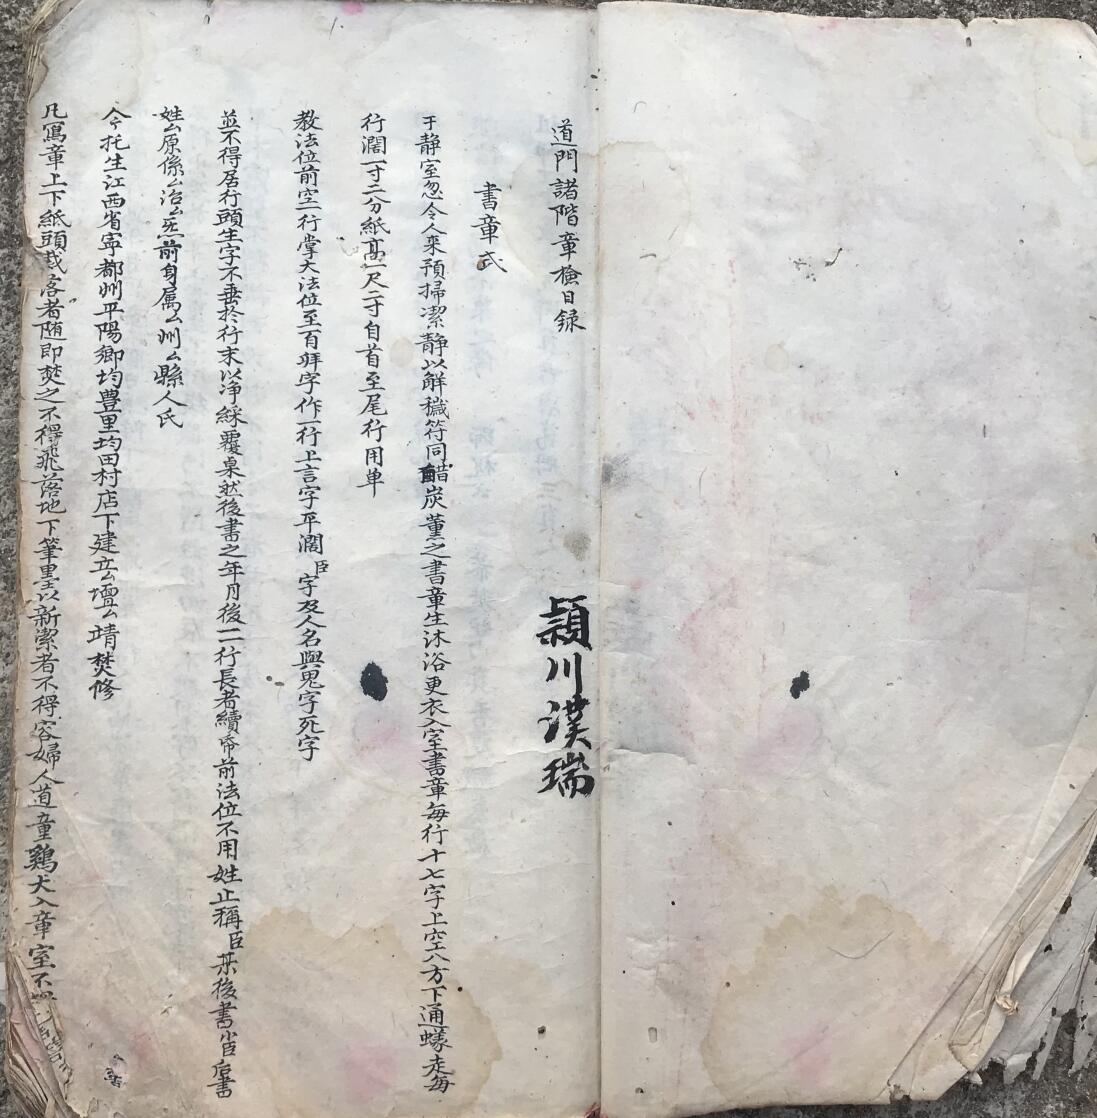 道門諸階章檢目錄
頴川漢瑞
書章式
于静室忽令人來預掃潔静以解穢符同醋炭薰之書章生沐浴更衣入室書章每行十七字上空八方下通蟻走每
行濶一寸二分紙髙一尺二寸自首至尾行用单
教法位前空一行掌大法位至百拜字作一行上言字平濶臣字及人名與鬼字死字
並不得居行頭生字不垂扵行末以净綵覆桌然後書之年月後一行長者續帋前法位不用姓止稱臣某後書
姓厶原係厶治厶炁前身属厶州厶縣人氏
今托生江西省寧都州平陽鄉均豊里均田村店下建立厶壇厶靖焚修
凡寫章上下紙頭裁落者随即焚之不得飛落地下筆墨以新潔者不得容婦人道童鷄犬入章室不